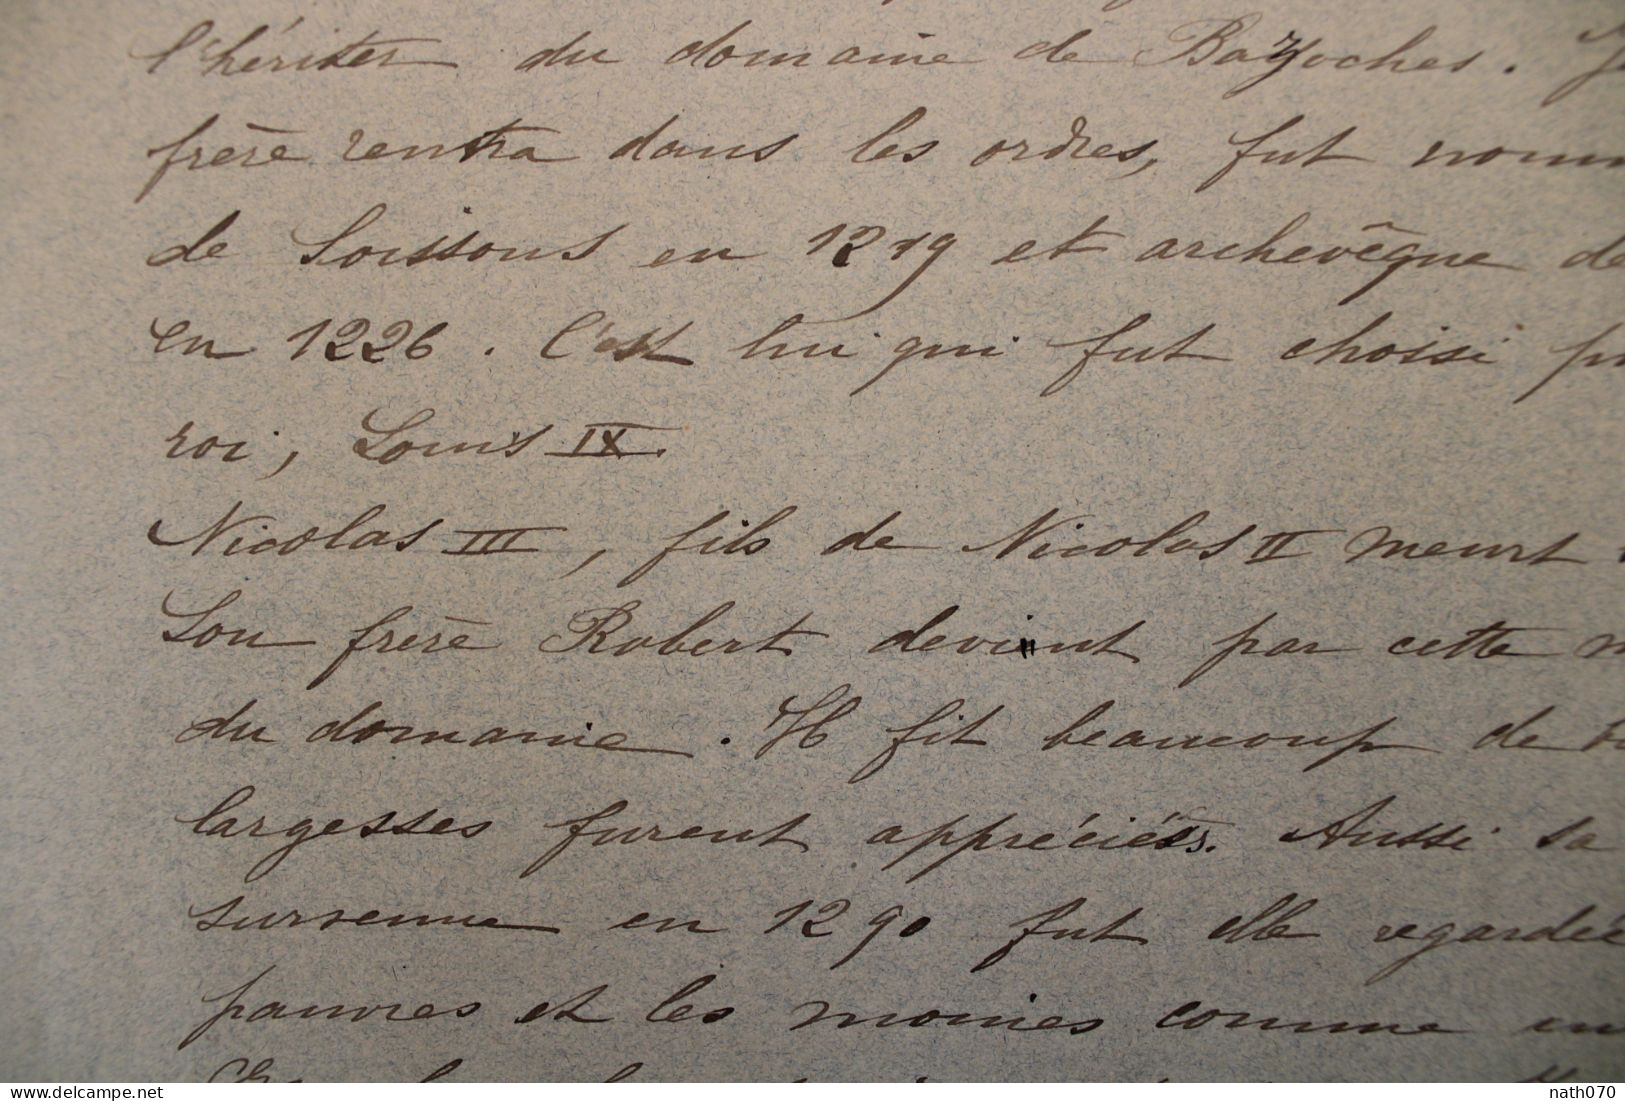 l'hériter du domaine de Bazoches.
frère rentra dans les ordres, fut
de Soissons en 1219 et archevêque de
en 1226. C'est lui qui fut choisi
roi, Louis IX.
Nicolas III, fils de Nicolas II meurt
Son frère Robert devient par cette
du domaine. Il fit beaucoup de
largesses furent appréciées. Aussi sa
survenue en 1290 fut elle regardée
pauvres et les moines comme
delcampe.net
nath070